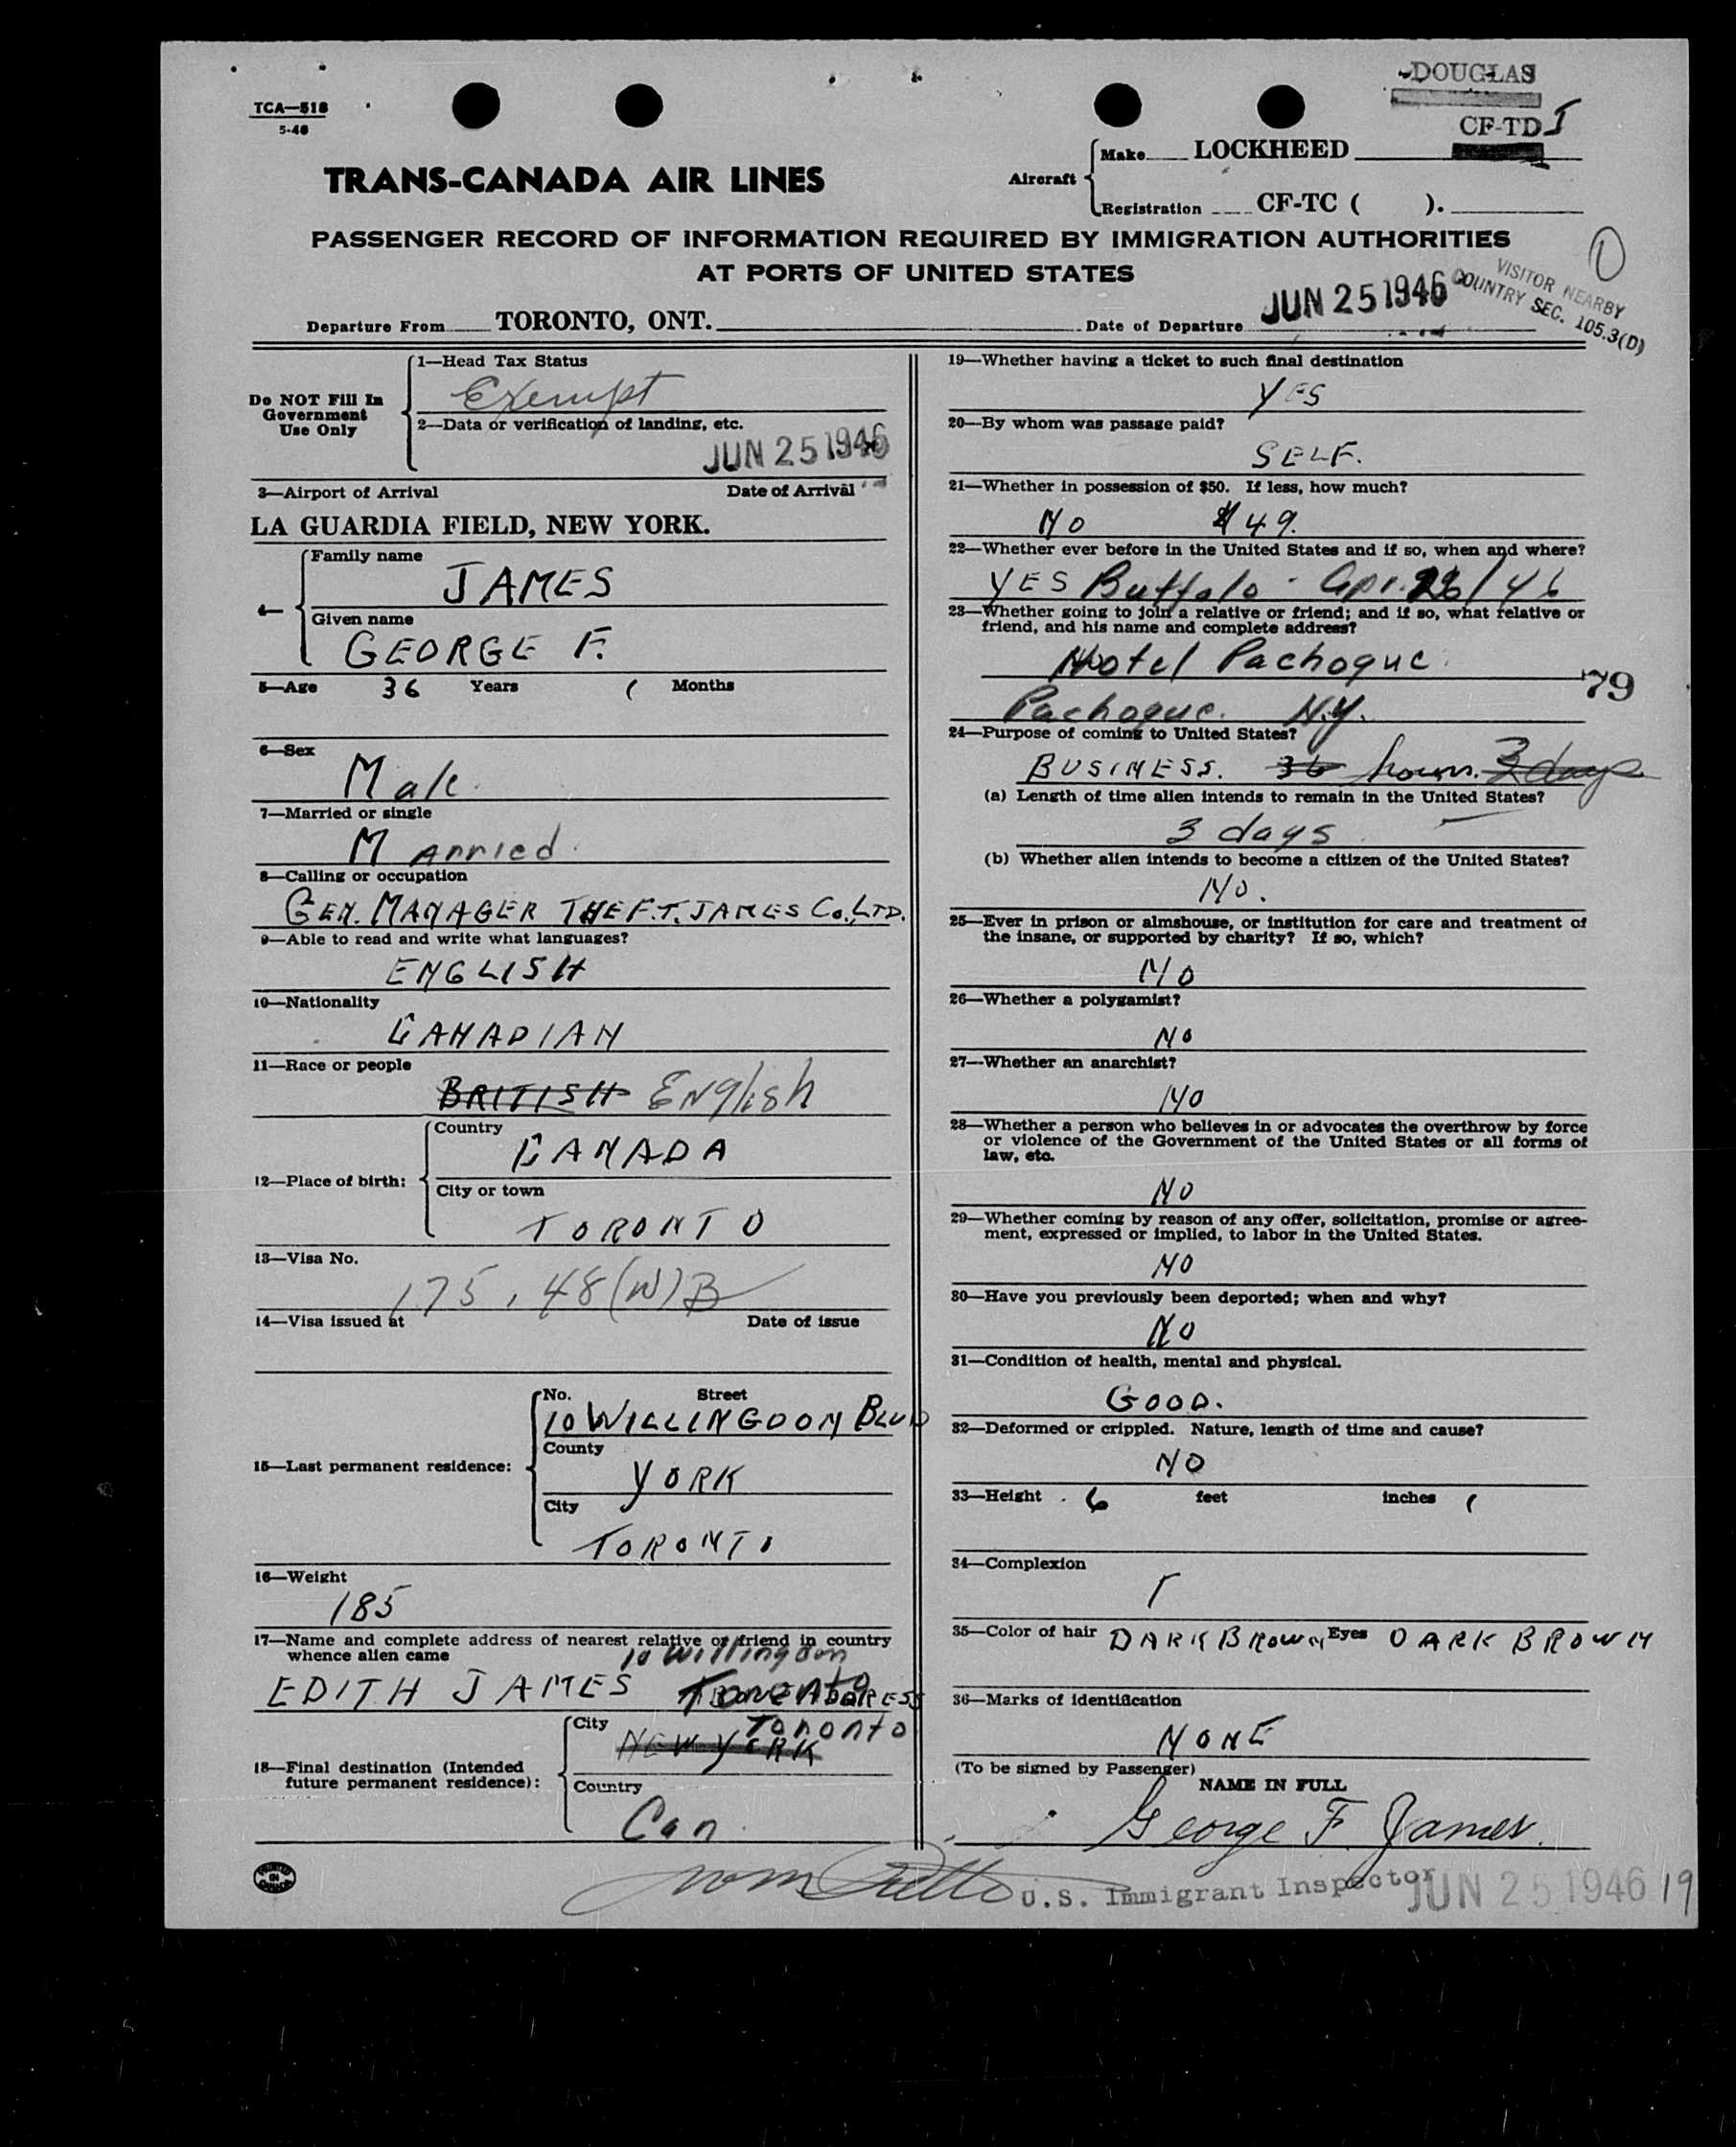 DOUGLAS
TCA—518
5-46
CF-TDI
Make LOCKHEED
TRANS-CANADA AIR LINES
Aircraft
Registration CF-TC ( ).
PASSENGER RECORD OF INFORMATION REQUIRED BY IMMIGRATION AUTHORITIES
AT PORTS OF UNITED STATES
1
VISITOR NEARBY
COUNTRY SEC. 105.3(D)
Departure From TORONTO, ONT. Date of Departure JUN 25 1946
Do NOT Fill In
Government
Use Only
1—Head Tax Status
Exempt
2—Data or verification of landing, etc.
JUN 25 1946
3—Airport of Arrival Date of Arrival
LA GUARDIA FIELD, NEW YORK.
4—
Family name
JAMES
Given name
GEORGE F.
5—Age 36 Years 1 Months
6—Sex
Male.
7—Married or single
Married.
8—Calling or occupation
GEN. MANAGER THE F.T. JAMES Co., LTD.
9—Able to read and write what languages?
ENGLISH
10—Nationality
CANADIAN
11—Race or people
BRITISH English
12—Place of birth:
Country
CANADA
City or town
TORONTO
13—Visa No.
175, 48(W)B
14—Visa issued at Date of issue
15—Last permanent residence:
No. Street
10 WILLINGDON BLVD
County
YORK
City
TORONTO
16—Weight
185
17—Name and complete address of nearest relative or friend in country
whence alien came
10 Willingdon
EDITH JAMES Toronto
18—Final destination (Intended
future permanent residence):
City
NEW YORK Toronto
Country
Can.
19—Whether having a ticket to such final destination
YES
20—By whom was passage paid?
SELF.
21—Whether in possession of $50. If less, how much?
NO $49.
22—Whether ever before in the United States and if so, when and where?
YES Buffalo - Apr. 26/46
23—Whether going to join a relative or friend; and if so, what relative or
friend, and his name and complete address?
Hotel Pachogue.
79
Pachogue. N.Y.
24—Purpose of coming to United States?
BUSINESS. 36 hours. 3 days
(a) Length of time alien intends to remain in the United States?
3 days
(b) Whether alien intends to become a citizen of the United States?
NO.
25—Ever in prison or almshouse, or institution for care and treatment of
the insane, or supported by charity? If so, which?
NO
26—Whether a polygamist?
NO
27—Whether an anarchist?
NO
28—Whether a person who believes in or advocates the overthrow by force
or violence of the Government of the United States or all forms of
law, etc.
NO
29—Whether coming by reason of any offer, solicitation, promise or agree-
ment, expressed or implied, to labor in the United States.
NO
30—Have you previously been deported; when and why?
NO
31—Condition of health, mental and physical.
GOOD.
32—Deformed or crippled. Nature, length of time and cause?
NO
33—Height 6 feet inches 1
34—Complexion
35—Color of hair DARK BROWN Eyes DARK BROWN
36—Marks of identification
NONE
(To be signed by Passenger)
NAME IN FULL
George F. James.
PRINTED IN CANADA
U.S. Immigrant Inspector JUN 25 1946 19